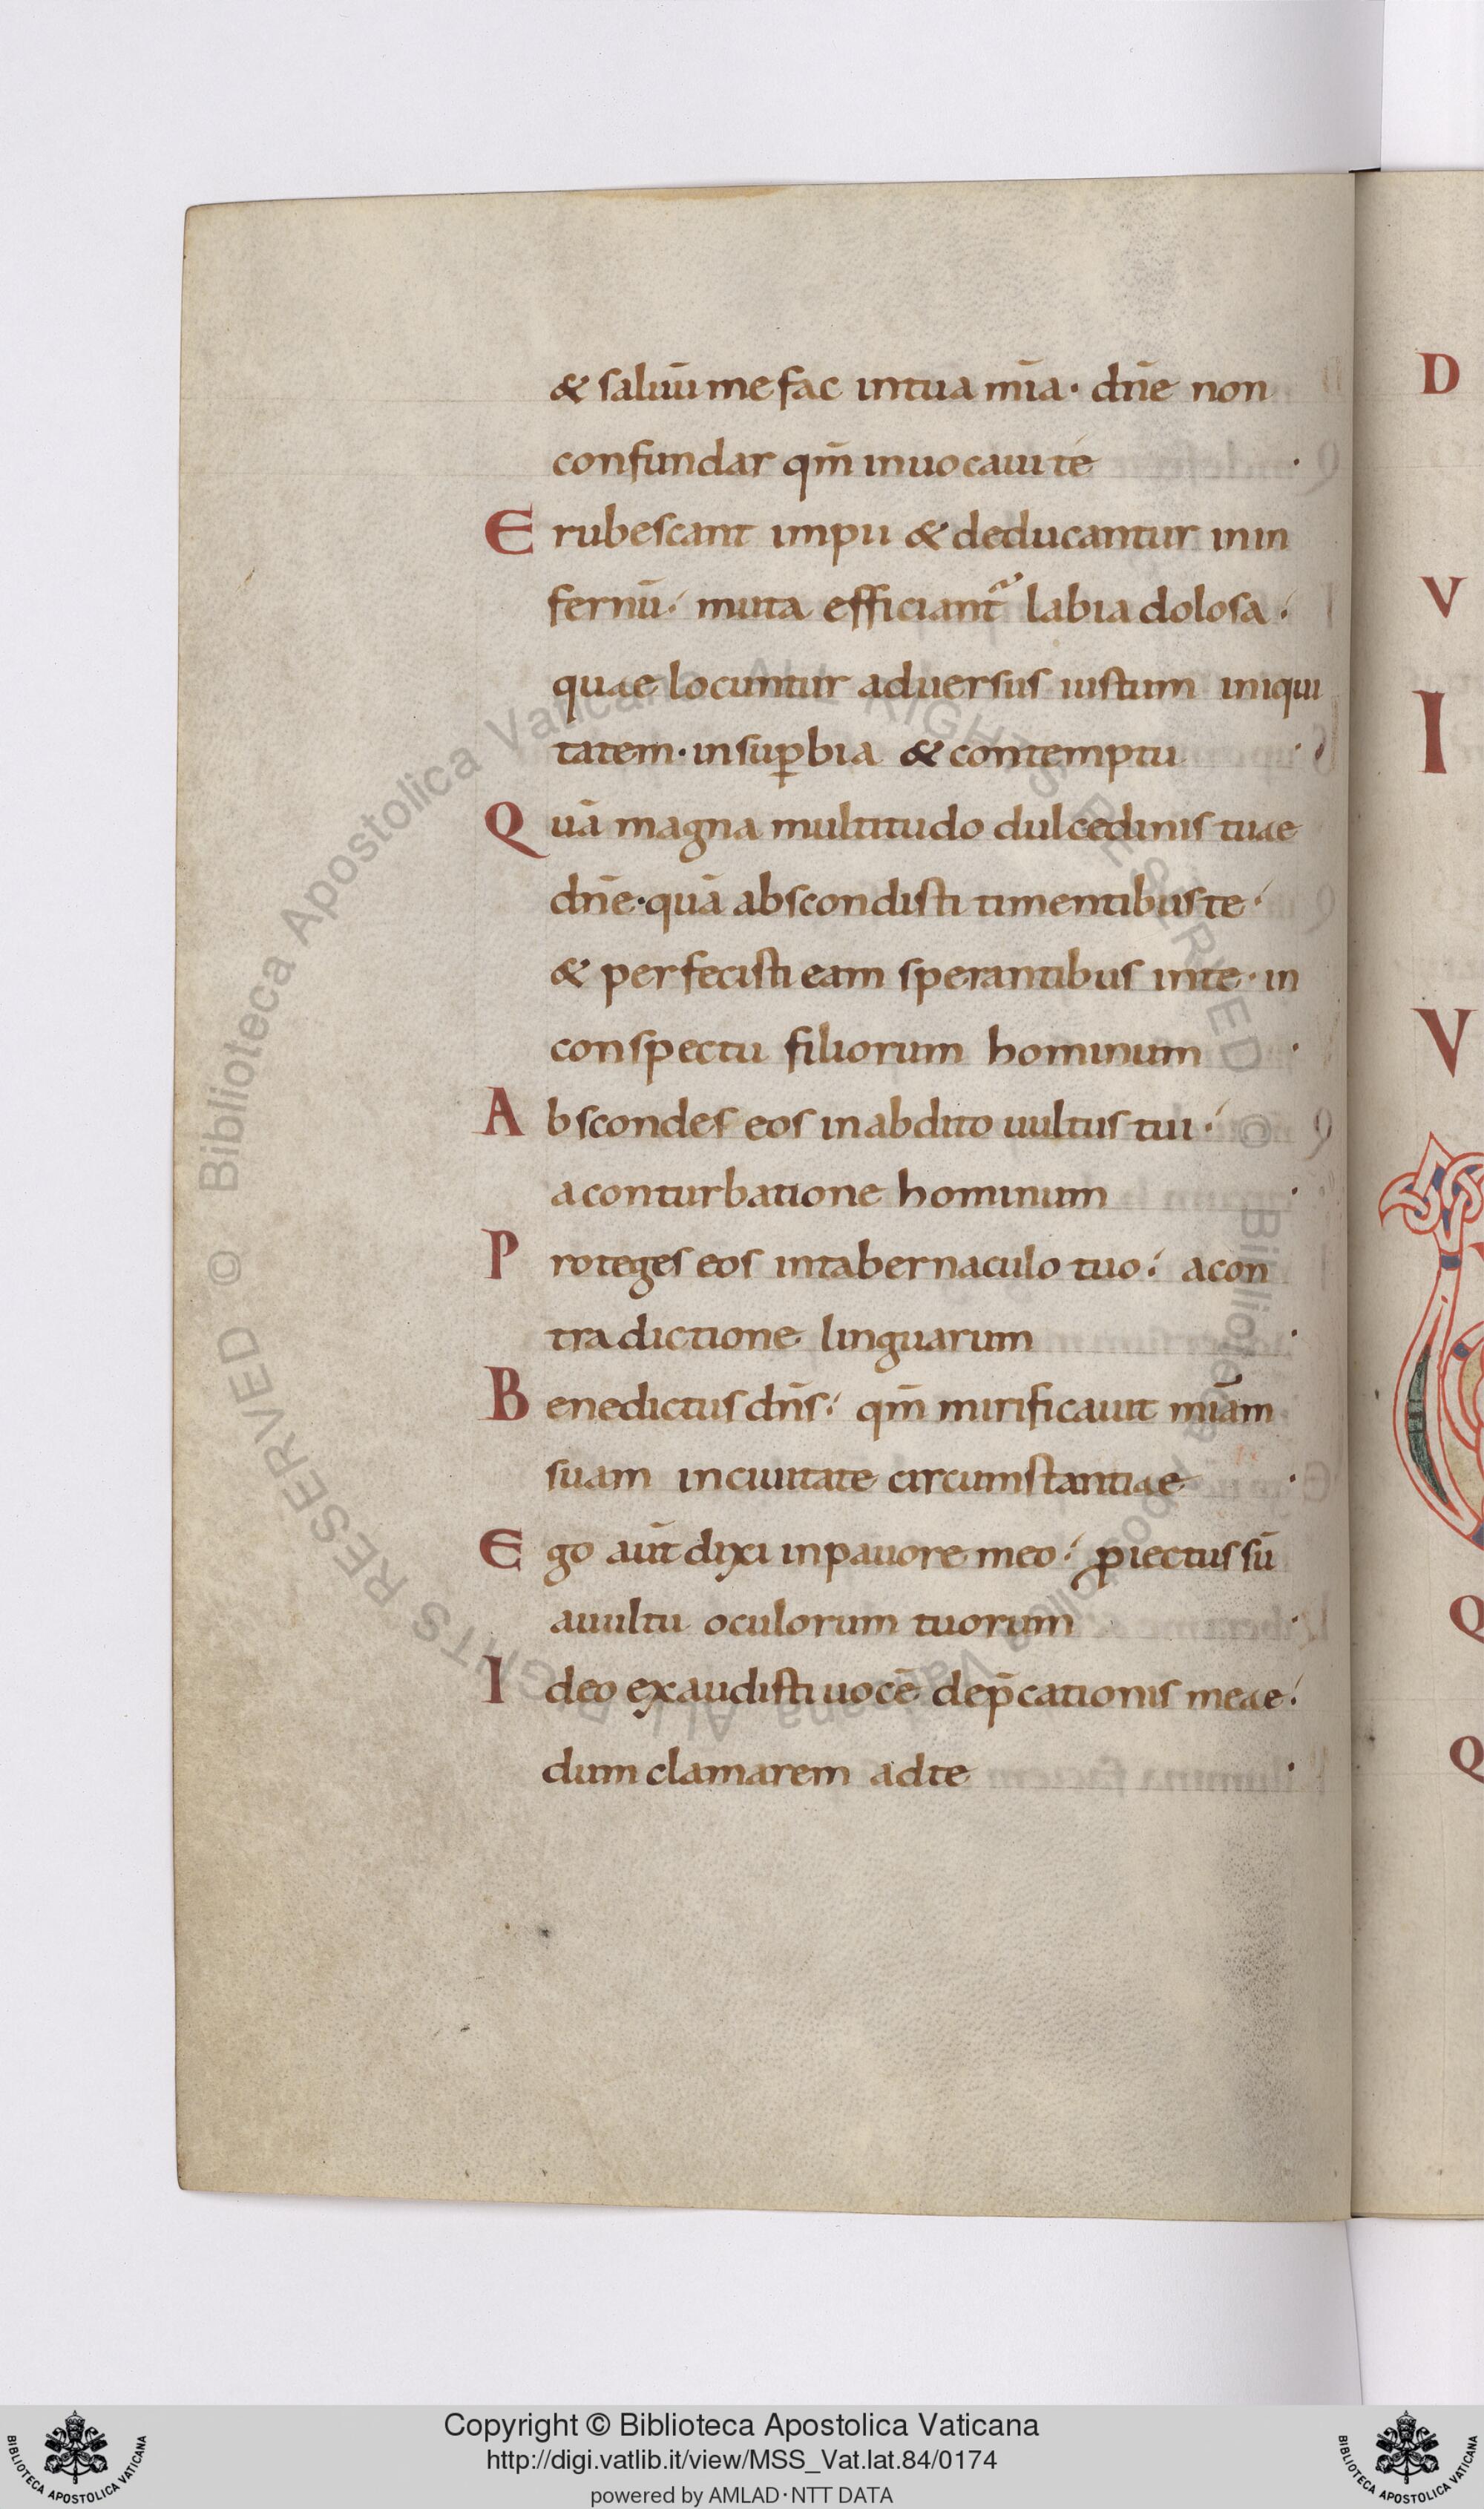 & saluū me fac in tua mīa · dn̄e non
confundar qm̄ inuocaui te ·
Erubescant impii & deducantur in in
fernū · muta efficiant̄ labia dolosa ·
quae locuntur aduersus iustum iniqui
tatem · in sup̱bia & contemptu ·
Quā magna multitudo dulcedinis tuae
dn̄e · quā abscondisti timentibus te ·
& perfecisti eam sperantibus in te · in
conspectu filiorum hominum ·
Abscondes eos in abdito uultus tui ·
a conturbatione hominum ·
Proteges eos in tabernaculo tuo · a con
tradictione linguarum ·
Benedictus dn̄s · qm̄ mirificauit mīam
suam in ciuitate circumstantiae ·
Ego aūt dixi in pauore meo · ꝓiectus sū
a uultu oculorum tuorum ·
Ideo exaudisti uocē dep̄cationis meae ·
dum clamarem ad te ·
D
V
I
V
Q
Q
© Biblioteca Apostolica Vaticana ALL RIGHTS RESERVED
© Biblioteca Apostolica Vaticana ALL RIGHTS RESERVED
BIBLIOTECA APOSTOLICA VATICANA
Copyright © Biblioteca Apostolica Vaticana
http://digi.vatlib.it/view/MSS_Vat.lat.84/0174
powered by AMLAD·NTT DATA
BIBLIOTECA APOSTOLICA VATICANA